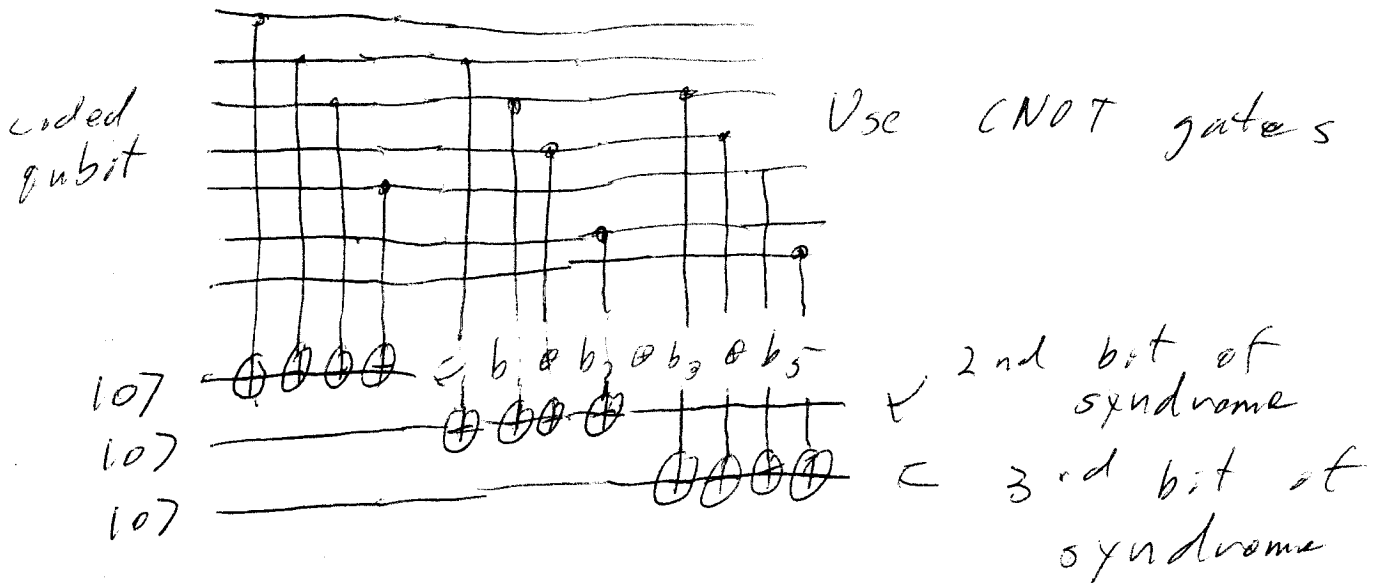 coded
qubit
Use CNOT gates
|0> ← b ⊕ b₂ ⊕ b₃ ⊕ b₅
|0> ← 2nd bit of
syndrome
|0> ← 3rd bit of
syndrome